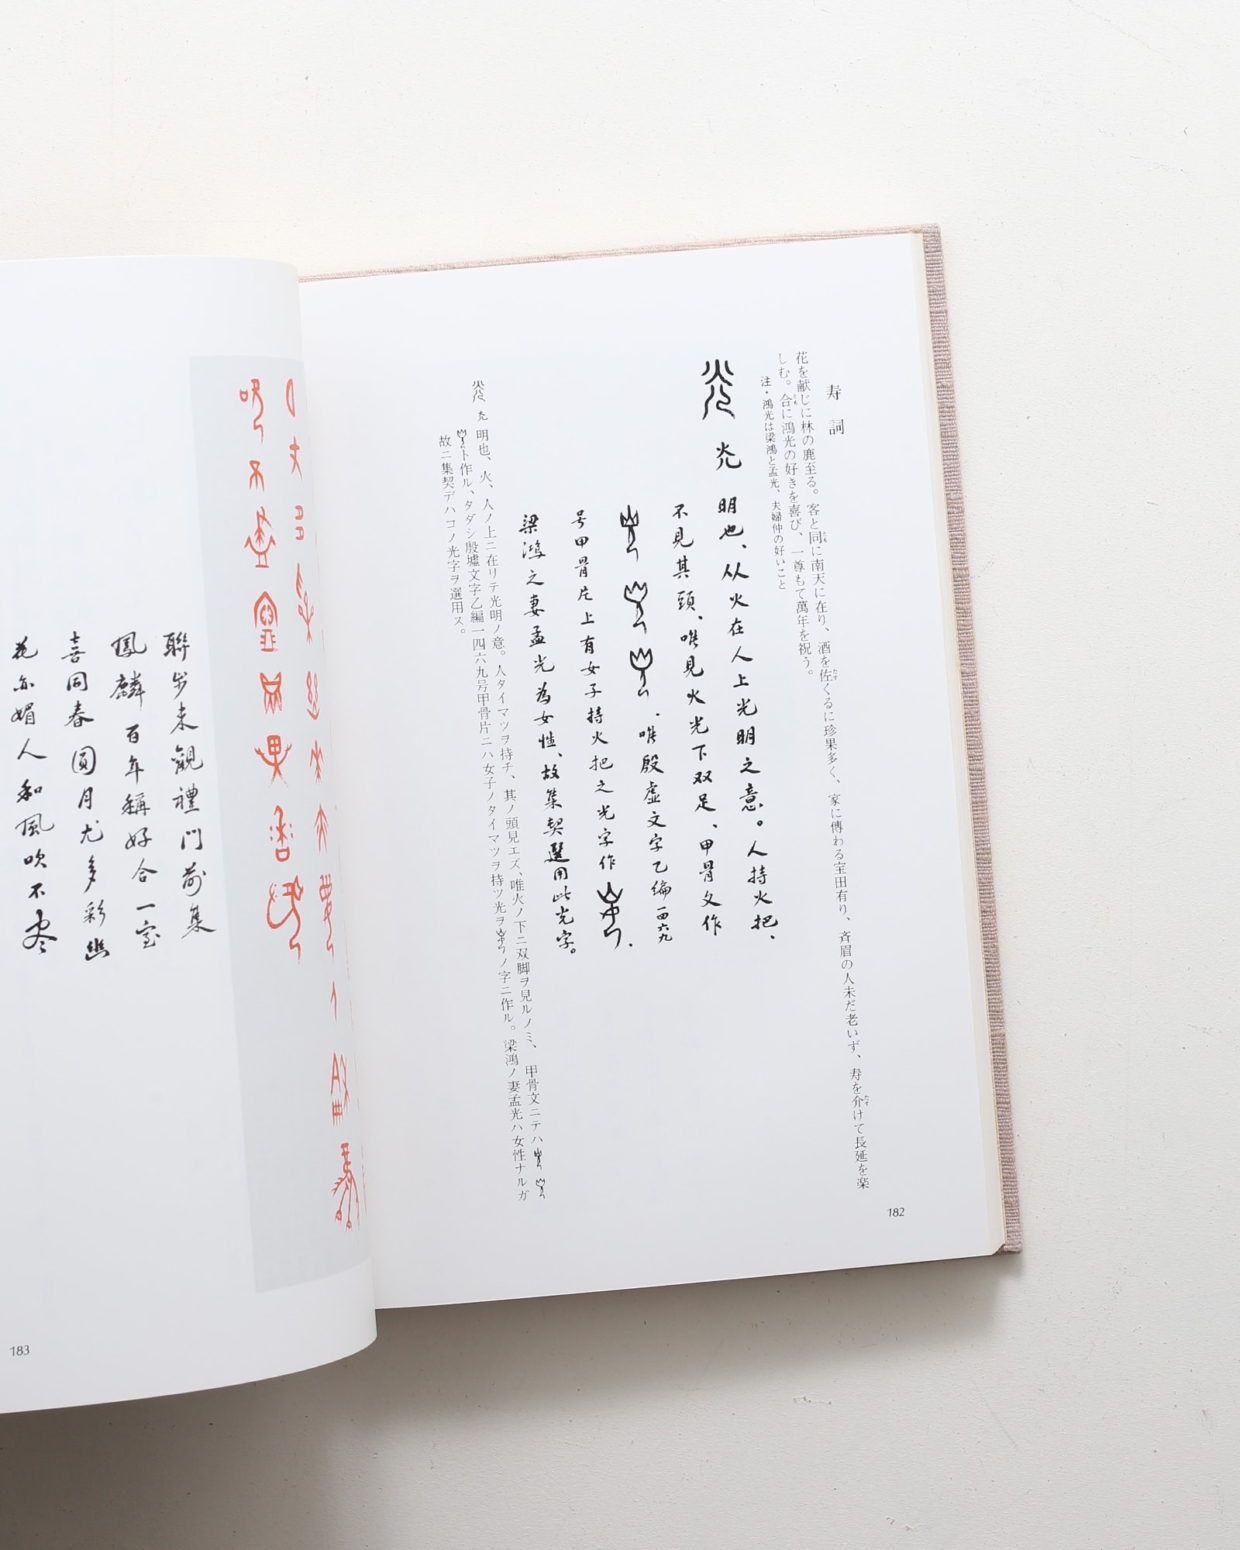 寿詞
花を献じに林の鹿至る。客と同に南天に在り、酒を佐くるに珍果多く、家に傳わる宝田有り、斉眉の人未だ老いず、寿を介けて長延を楽
しむ。合に鴻光の好きを喜び、一尊もて萬年を祝う。
注・鴻光は梁鴻と孟光、夫婦仲の好いこと
光 明也、从火在人上光明之意。人持火把、
不見其頭、唯見火光下双足、甲骨文作
唯殷虚文字乙編一四六九
号甲骨片上有女子持火把之光字作
梁鴻之妻孟光為女性、故集契選用此光字。
光 明也、火、人ノ上ニ在リテ光明ノ意。人タイマツヲ持チ、其ノ頭見エズ、唯火ノ下ニ双脚ヲ見ルノミ、甲骨文ニテハ
ト作ル、タダシ殷墟文字乙編一四六九号甲骨片ニハ女子ノタイマツヲ持ツ光ヲノ字ニ作ル。梁鴻ノ妻孟光ハ女性ナルガ
故ニ集契デハコノ光字ヲ選用ス。
182
聯步来觀禮門前集
鳳麟百年稱好合一室
喜同春圓月尤多彩幽
花亦媚人和風吹不
183